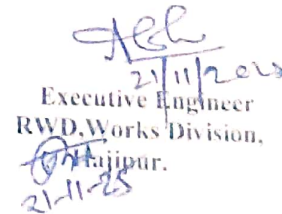 21/11/2025
Executive Engineer
RWD,Works Division,
Hajipur.
21-11-25